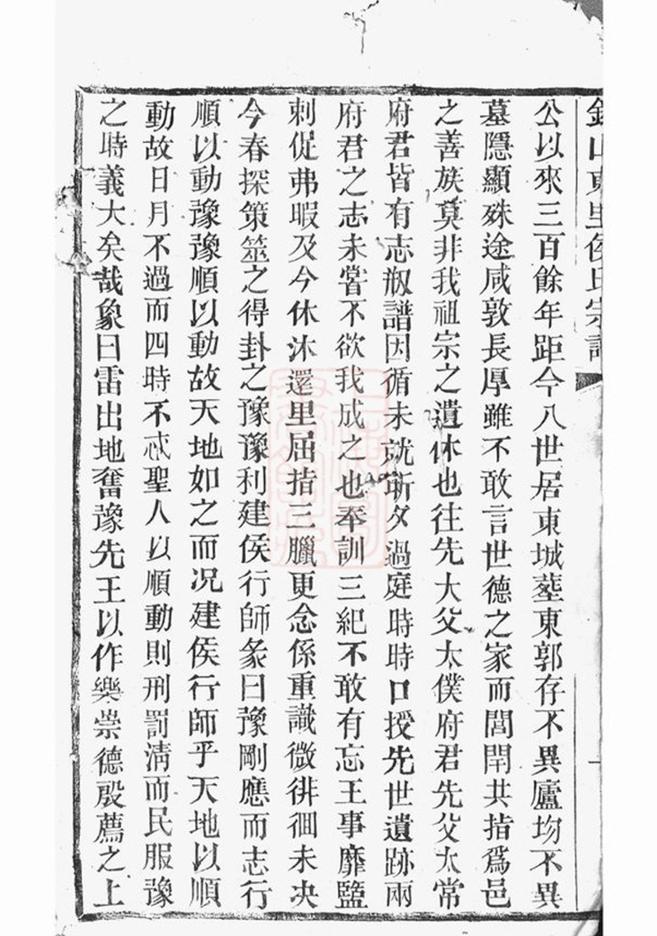 錫山東里侯氏宗譜
公以來三百餘年距今八世居東城塟東郭存不異廬均不異
墓隱顯殊途咸敦長厚雖不敢言世德之家而閭閈共指爲邑
之善族莫非我祖宗之遺休也往先大父太僕府君先父太常
府君皆有志剏譜因循未就昕夕過庭時時口授先世遺跡兩
府君之志未嘗不欲我成之也奉訓三紀不敢有忘王事靡盬
刺促弗暇及今休沐還里屈指三臘更念係重識微徘徊未决
今春探策筮之得卦之豫豫利建侯行師彖曰豫剛應而志行
順以動豫豫順以動故天地如之而况建侯行師乎天地以順
動故日月不過而四時不忒聖人以順動則刑罰淸而民服豫
之時義大矣哉象曰雷出地奮豫先王以作樂崇德殷薦之上